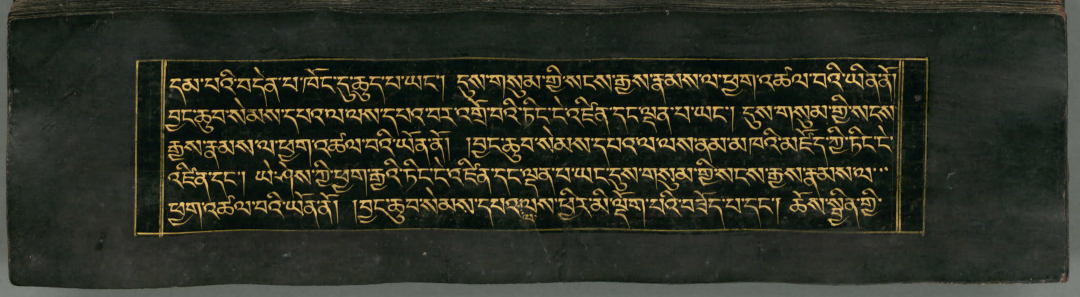 དམ་པའི་བདེན་པ་ཁོང་དུ་ཆུད་པ་ཡང་། དུས་གསུམ་གྱི་སངས་རྒྱས་རྣམས་ལ་ཕྱག་འཚལ་བའི་ཡོན་ནོ
བྱང་ཆུབ་སེམས་དཔའ་ལ་ལས་དཔའ་བར་འགྲོ་བའི་ཏིང་ངེ་འཛིན་དང་ལྡན་པ་ཡང་། དུས་གསུམ་གྱི་སངས
རྒྱས་རྣམས་ལ་ཕྱག་འཚལ་བའི་ཡོན་ནོ། །བྱང་ཆུབ་སེམས་དཔའ་ལ་ལས་ནམ་མཁའི་མཛོད་ཀྱི་ཏིང་ངེ་
འཛིན་དང་། ཡེ་ཤེས་ཀྱི་ཕྱག་རྒྱའི་ཏིང་ངེ་འཛིན་དང་ལྡན་པ་ཡང་དུས་གསུམ་གྱི་སངས་རྒྱས་རྣམས་ལ་
ཕྱག་འཚལ་བའི་ཡོན་ནོ། །བྱང་ཆུབ་སེམས་དཔའ་ལས་ཕྱིར་མི་ལྡོག་པའི་བཟོད་པ་དང་། ཆོས་སྤྲིན་གྱི་